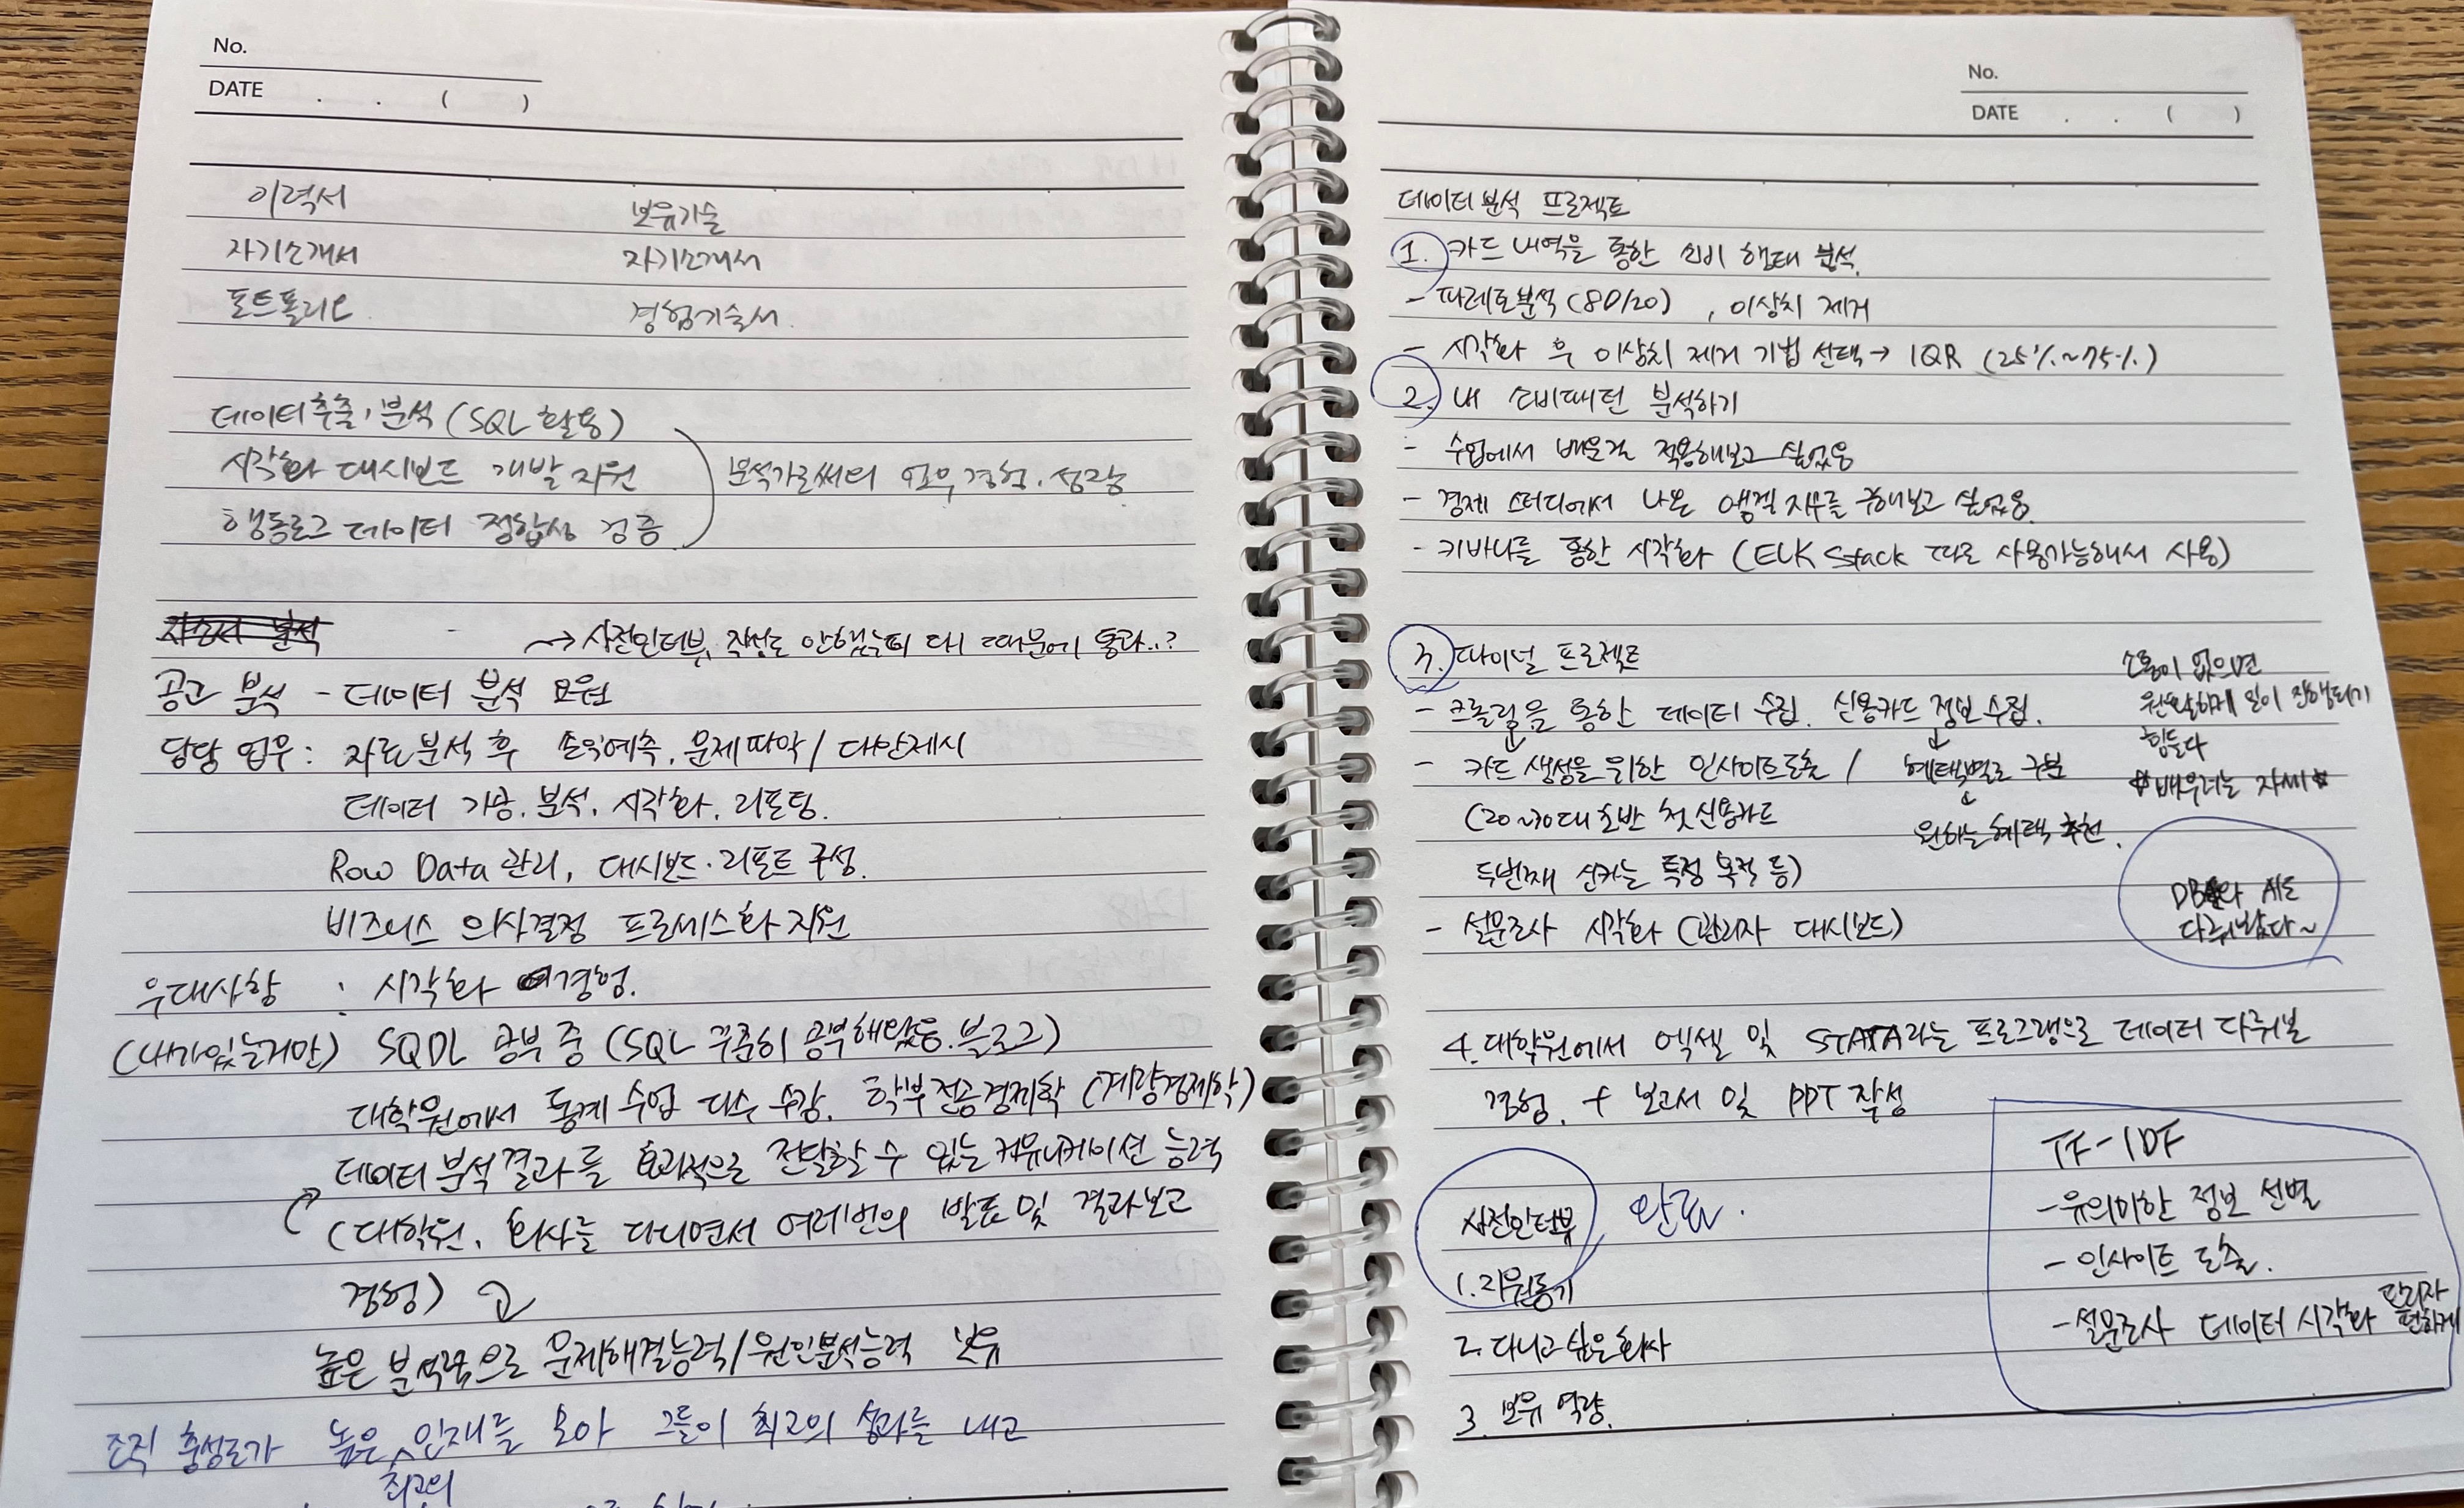 No.
DATE . . ( )
이력서 보유기술
자기소개서 자기소개서
포트폴리오 경험기술서.
데이터 추출, 분석 (SQL 활용)
시각화 대시보드 개발 지원
분석가로써의 업무경험. 성장
행동로그 데이터 정합성 검증
자소서 분석
→ 사전인터뷰, 작성도 안했는데 다 때문에 통과..?
공고 분석 - 데이터 분석 요원
담당 업무 : 자료분석 후 손익예측, 문제파악 / 대안제시
데이터 가공. 분석. 시각화. 리포팅.
Row Data 관리, 대시보드·리포트 구성.
비즈니스 의사결정 프로세스화 지원
우대사항 : 시각화 경험.
(내가있는거만) SQDL 공부 중 (SQL 꾸준히 공부해왔음. 블로그)
대학원에서 통계 수업 다수 수강. 학부전공경제학 (계량경제학)
데이터 분석결과를 효과적으로 전달할 수 있는 커뮤니케이션 능력
(대학원, 회사를 다니면서 여러번의 발표 및 결과보고
경험)
높은 분석력으로 문제해결능력/원인분석능력 보유
조직 충성도가 높은 인재를 모아 그들이 최고의 성과를 내고
최고의
No.
DATE . . ( )
데이터 분석 프로젝트
1. 카드 내역을 통한 소비 행태 분석.
- 파레토분석 (80/20) , 이상치 제거
- 시각화 후 이상치 제거 기법 선택 → IQR (25%~75%)
2. 내 소비패턴 분석하기
- 수업에서 배운걸 적용해보고 싶었음
- 경제 스터디에서 나온 엥겔 지수를 구해보고 싶었음.
- 키바나를 통한 시각화 (ELK Stack 따로 사용가능해서 사용)
3. 파이널 프로젝트
- 크롤링을 통한 데이터 수집. 신용카드 정보 수집.
↓
- 카드 생성을 위한 인사이트 도출 / 혜택별로 구분
↓
(20~30대 초반 첫 신용카드 원하는 혜택 추천.
두번째 신카는 특정 목적 등)
- 설문조사 시각화 (관리자 대시보드)
소통이 없으면
원활하게 일이 진행되기
힘들다
☆배우려는 자세☆
DB와 AI도
다뤄봤다~
4. 대학원에서 엑셀 및 STATA라는 프로그램으로 데이터 다뤄본
경험. + 보고서 및 PPT 작성
사전인터뷰 완료.
1. 지원동기
2. 다니고 싶은 회사
3. 보유 역량.
TF-IDF
- 유의미한 정보 선별
- 인사이트 도출.
- 설문조사 데이터 시각화 관리자 편하게